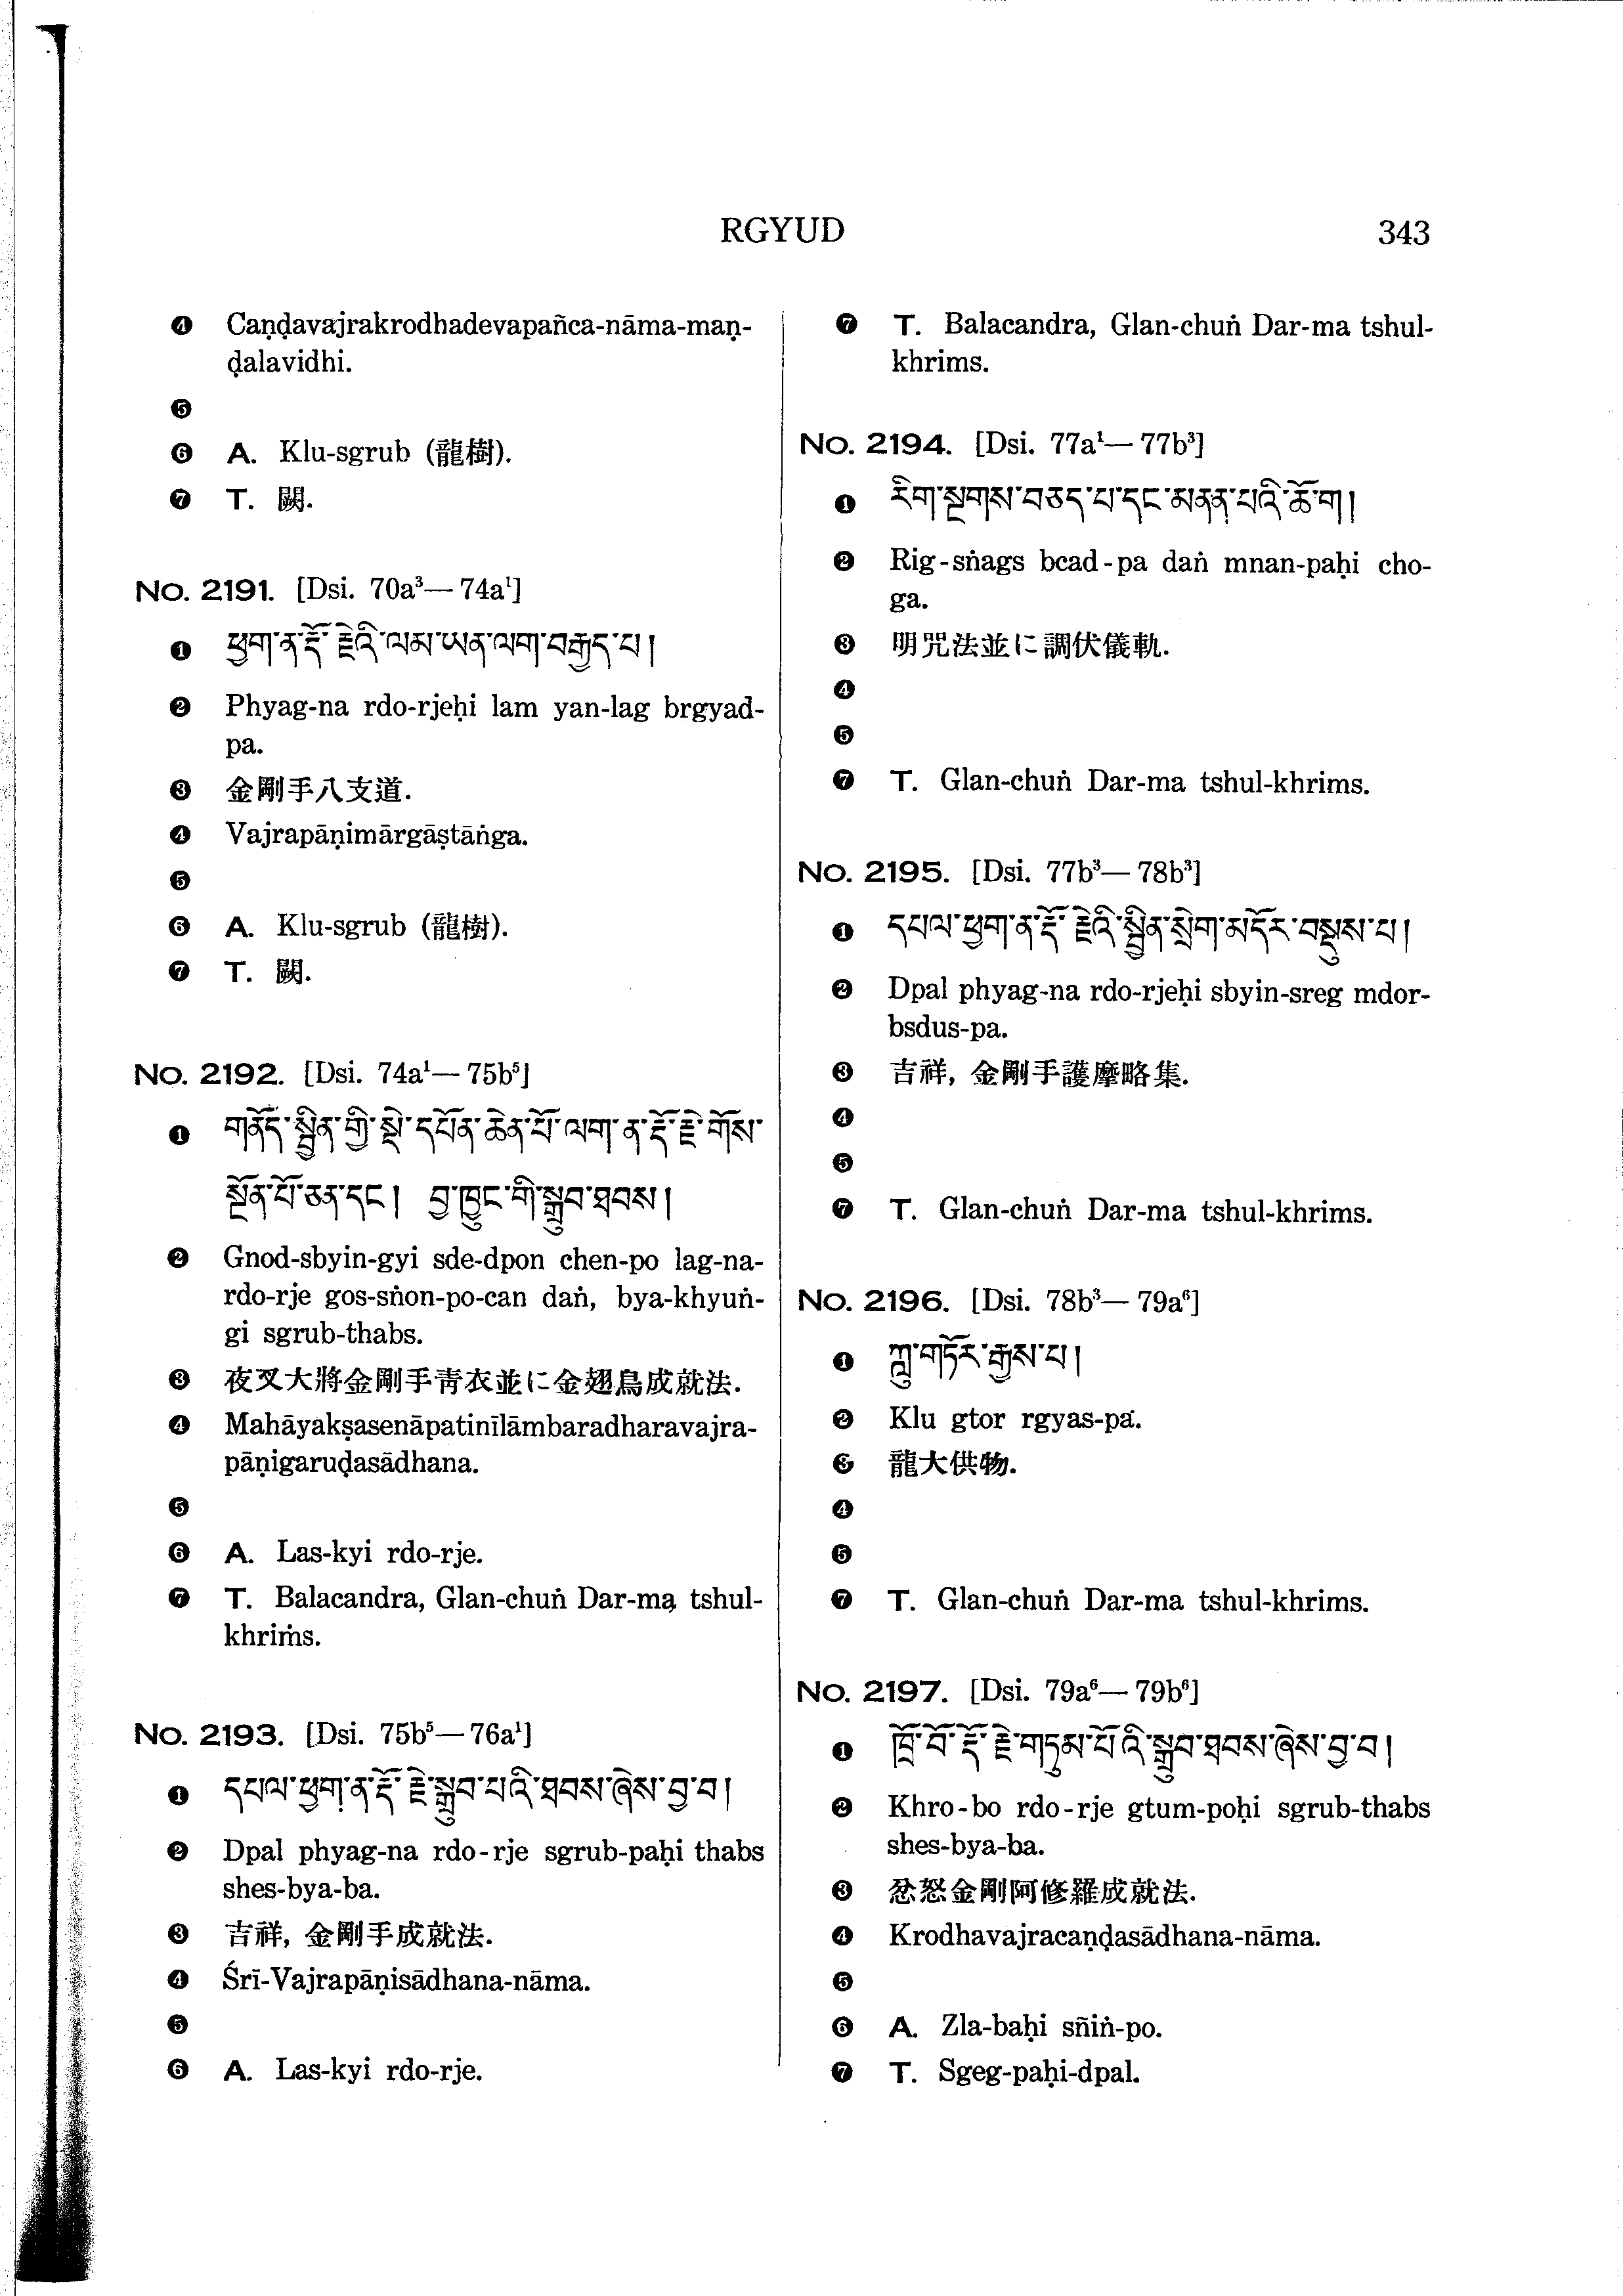 RGYUD
343
❹ Caṇḍavajrakrodhadevapañca-nāma-maṇ-
ḍalavidhi.
❺
❻ A. Klu-sgrub (龍樹).
❼ T. 闕.
No. 2191. [Dsi. 70a³—74a¹]
❶ ཕྱག་ན་རྡོ་རྗེའི་ལམ་ཡན་ལག་བརྒྱད་པ།
❷ Phyag-na rdo-rjeḥi lam yan-lag brgyad-
pa.
❸ 金剛手八支道.
❹ Vajrapāṇimārgāṣtāṅga.
❺
❻ A. Klu-sgrub (龍樹).
❼ T. 闕.
No. 2192. [Dsi. 74a¹—75b⁵]
❶ གནོད་སྦྱིན་གྱི་སྡེ་དཔོན་ཆེན་པོ་ལག་ན་རྡོ་རྗེ་གོས་
སྔོན་པོ་ཅན་དང༌། བྱ་ཁྱུང་གི་སྒྲུབ་ཐབས།
❷ Gnod-sbyin-gyi sde-dpon chen-po lag-na-
rdo-rje gos-sṅon-po-can daṅ, bya-khyuṅ-
gi sgrub-thabs.
❸ 夜叉大將金剛手靑衣並に金翅鳥成就法.
❹ Mahāyakṣasenāpatinīlāmbaradharavajra-
pāṇigaruḍasādhana.
❺
❻ A. Las-kyi rdo-rje.
❼ T. Balacandra, Glan-chuṅ Dar-ma tshul-
khriṁs.
No. 2193. [Dsi. 75b⁵—76a¹]
❶ དཔལ་ཕྱག་ན་རྡོ་རྗེ་སྒྲུབ་པའི་ཐབས་ཞེས་བྱ་བ།
❷ Dpal phyag-na rdo-rje sgrub-paḥi thabs
shes-bya-ba.
❸ 吉祥, 金剛手成就法.
❹ Śrī-Vajrapāṇisādhana-nāma.
❺
❻ A. Las-kyi rdo-rje.
❼ T. Balacandra, Glan-chuṅ Dar-ma tshul-
khrims.
No. 2194. [Dsi. 77a¹—77b³]
❶ རིག་སྔགས་བཅད་པ་དང་མནན་པའི་ཆོ་ག།
❷ Rig-sṅags bcad-pa daṅ mnan-paḥi cho-
ga.
❸ 明咒法並に調伏儀軌.
❹
❺
❼ T. Glan-chuṅ Dar-ma tshul-khrims.
No. 2195. [Dsi. 77b³—78b³]
❶ དཔལ་ཕྱག་ན་རྡོ་རྗེའི་སྦྱིན་སྲེག་མདོར་བསྡུས་པ།
❷ Dpal phyag-na rdo-rjeḥi sbyin-sreg mdor-
bsdus-pa.
❸ 吉祥, 金剛手護摩略集.
❹
❺
❼ T. Glan-chuṅ Dar-ma tshul-khrims.
No. 2196. [Dsi. 78b³—79a⁶]
❶ ཀླུ་གཏོར་རྒྱས་པ།
❷ Klu gtor rgyas-pa.
❸ 龍大供物.
❹
❺
❼ T. Glan-chuṅ Dar-ma tshul-khrims.
No. 2197. [Dsi. 79a⁶—79b⁶]
❶ ཁྲོ་བོ་རྡོ་རྗེ་གཏུམ་པོའི་སྒྲུབ་ཐབས་ཞེས་བྱ་བ།
❷ Khro-bo rdo-rje gtum-poḥi sgrub-thabs
shes-bya-ba.
❸ 忿怒金剛阿修羅成就法.
❹ Krodhavajracaṇḍasādhana-nāma.
❺
❻ A. Zla-baḥi sñiṅ-po.
❼ T. Sgeg-paḥi-dpal.